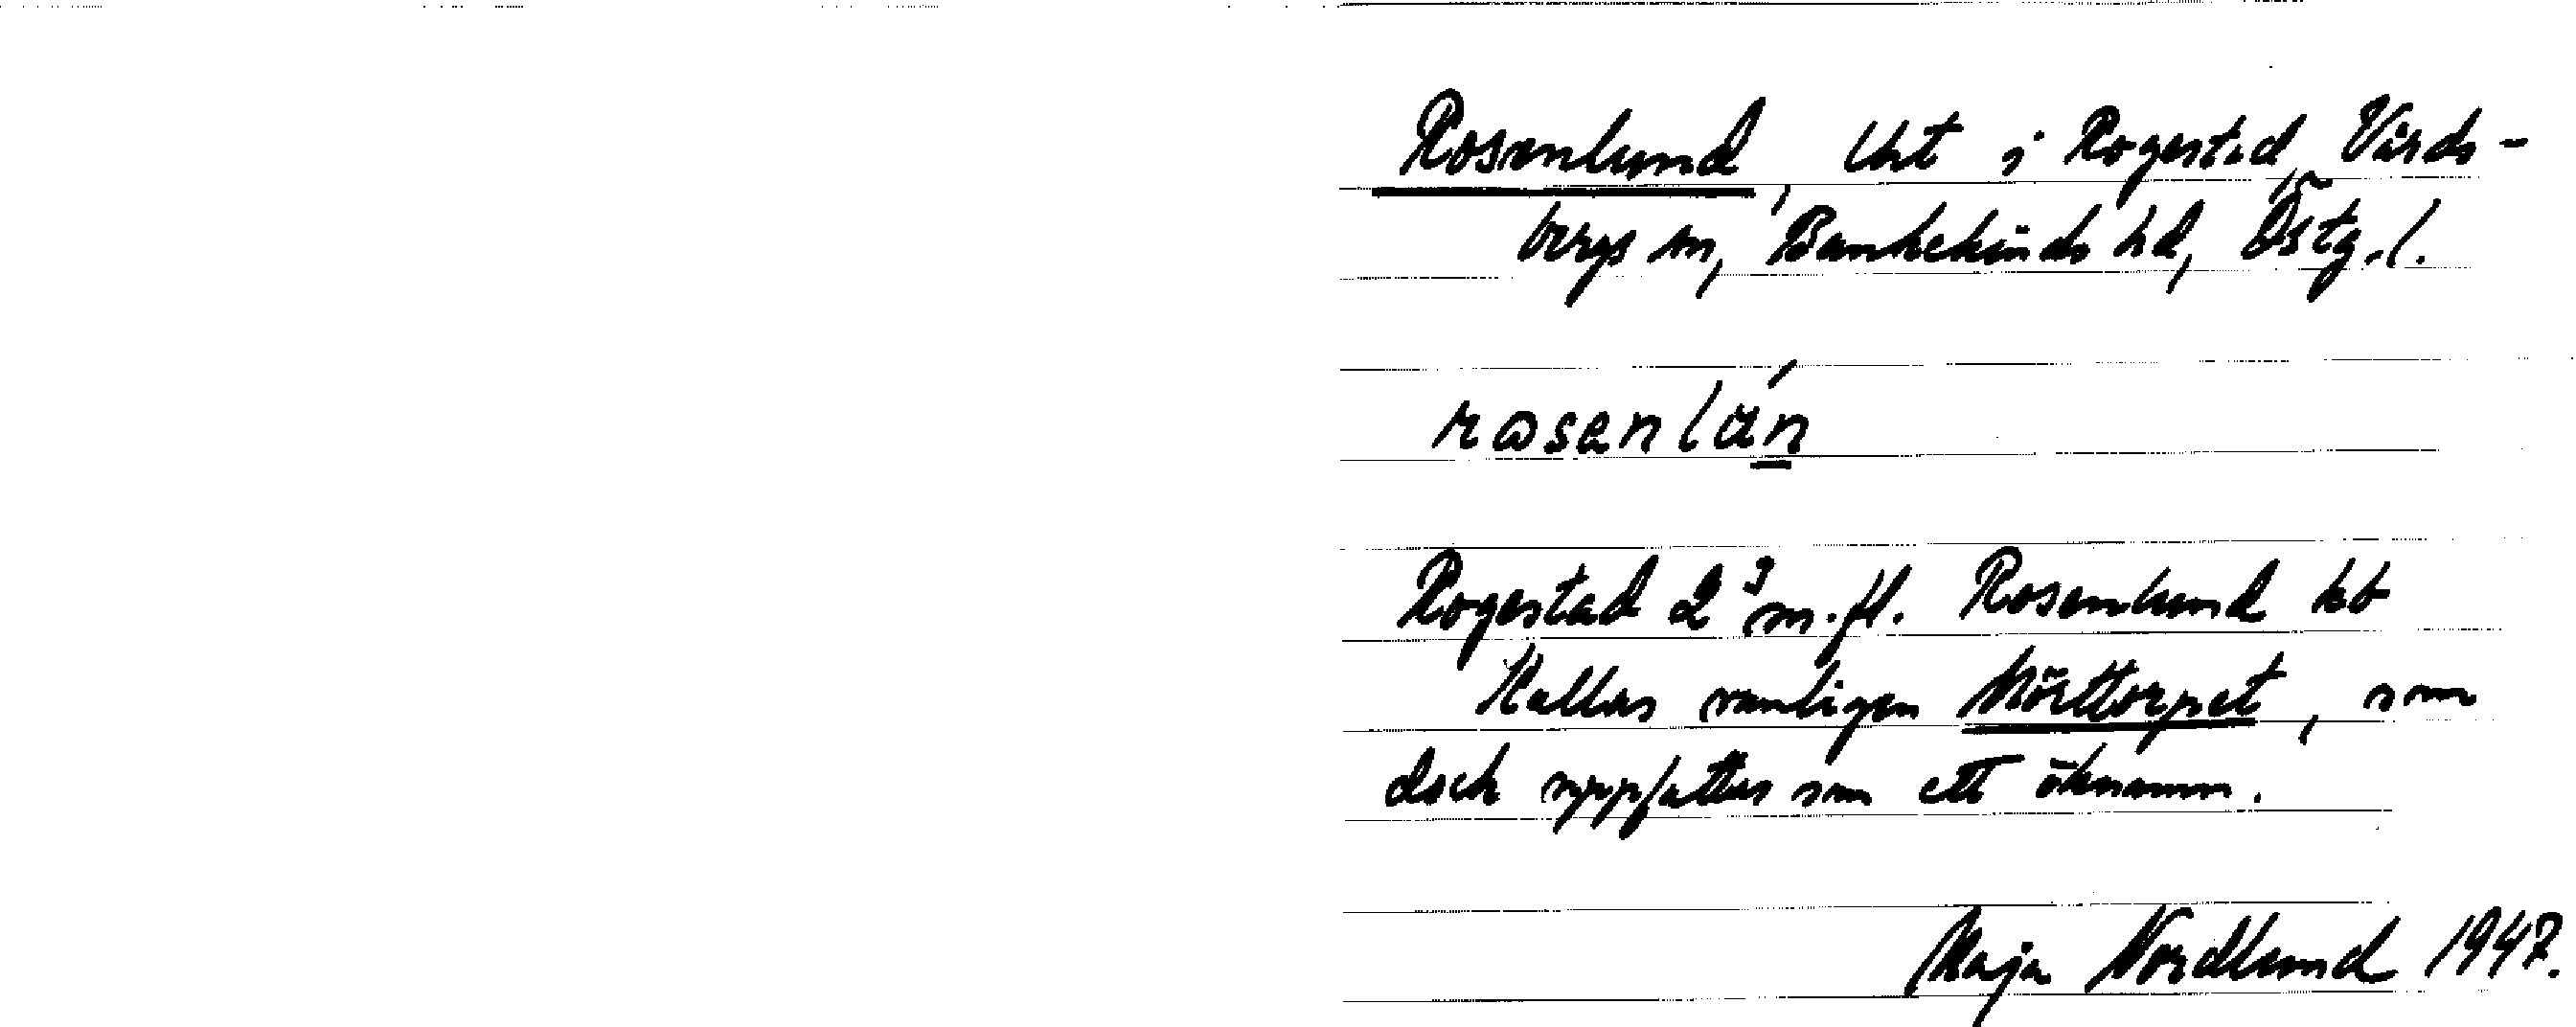 Rosenlund, lht i Rogestad, Vårds-
bergs sn, Bankekinds hd, Östg.l.
rosenlán
Rogestad 2³ m.fl. Rosenlund kb
Kallas vanligen Mörttorpet, som
dock uppfattas som ett öknamn.
Maja Nordlund 1947.